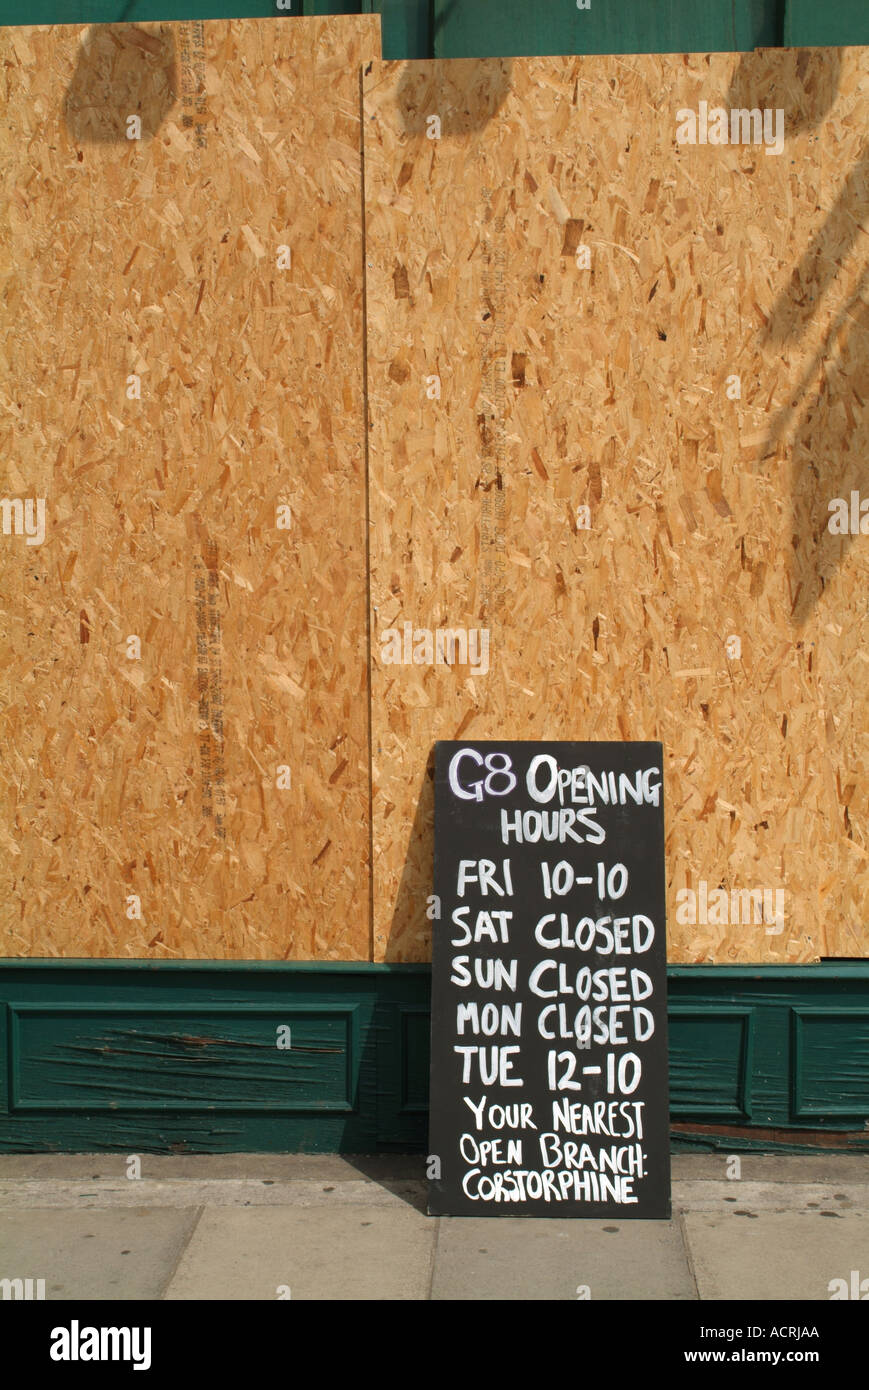 G8 OPENING
HOURS
FRI 10-10
SAT CLOSED
SUN CLOSED
MON CLOSED
TUE 12-10
YOUR NEAREST
OPEN BRANCH:
CORSTORPHINE
alamy
alamy
alamy
alamy
alamy
Image ID: ACRJAA
www.alamy.com